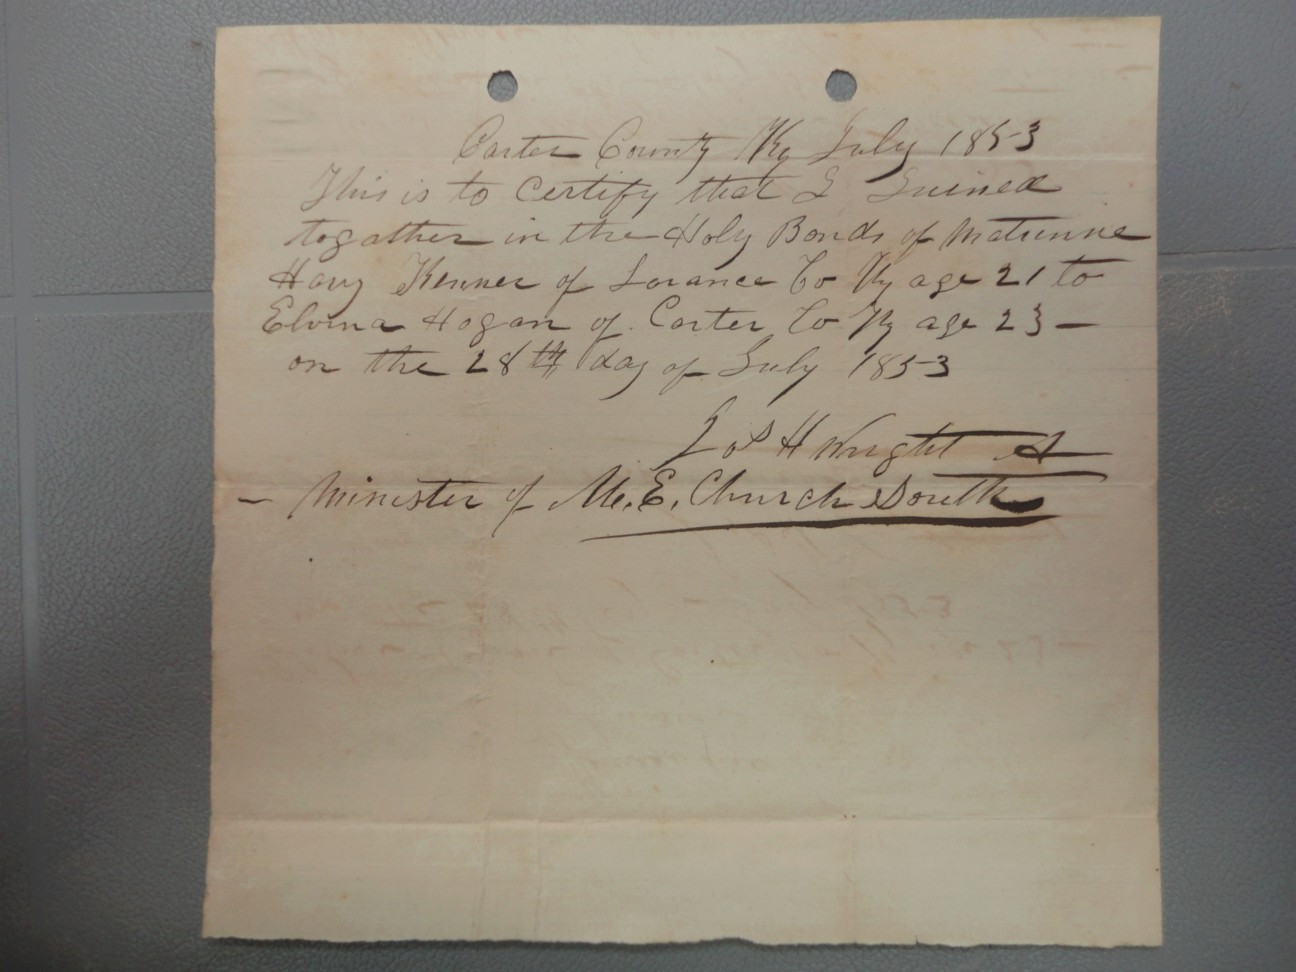 Carter County Ky July 1853
This is to certify that I Juined
togather in the Holy Bonds of Matrimne
Harvy Kenner of Lorance Co Ky age 21 to
Elvina Hogan of Carter Co Ky age 23 –
on the 28th day of July 1853
Jos H Wright A
– Minister of M.E. Church South